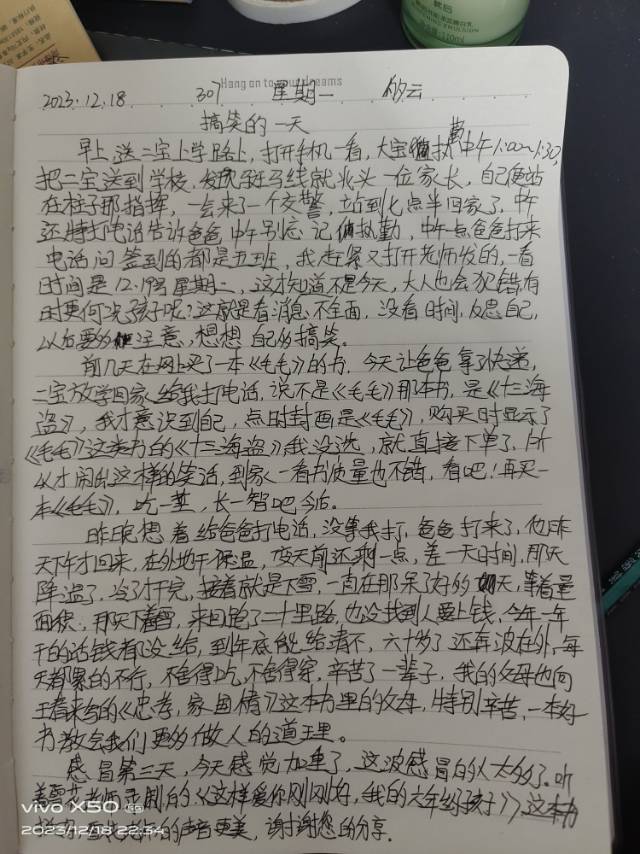 Hang on to your dreams
2023.12.18 307 星期一 多云
搞笑的一天
早上送二宝上学路上,打开手机一看,大宝执勤中午1:00~1:30,
把二宝送到学校,发现斑马线就兆头一位家长,自己便站
在柱子那指挥,一会来了一个交警,站到七点半回家了,中午
还特打电话告诉爸爸中午别忘记值执勤,中午点爸爸打来
电话问签到的都是五班,我赶紧又打开老师发的,一看
时间是12.19号星期二,这才知道不是今天,大人也会犯错,有
时更何况孩子呢?这就是看消息不全面,没看时间,反思自己,
以后要多注意,想想自己的搞笑。
前几天在网上买了一本《毛毛》的书,今天让爸爸拿了快递,
二宝放学回家给我打电话,说不是《毛毛》那本书,是《十三海
盗》,我才意识到自己,点时封面是《毛毛》,购买时显示了
《毛毛》这类书的《十三海盗》我没选,就直接下单了,所
以才闹出这样的笑话,到家一看书质量也不错,看吧!再买一
本《毛毛》,吃一堑,长一智吧
昨晚想着给爸爸打电话,没等我打,爸爸打来了,他昨
天下午才回来,在外地干保温,前天前还剩一点,差一天时间,那天
降温了,当了干完,接着就是下雪,一直在那呆了好多天,等着量
面积,那天下着雪,来回跑了二十里路,也没找到人要上钱,今年一年
干的活钱都没给,到年底能给清不,六十多了还奔波在外,每
天都累的不行,不舍得吃,不舍得穿,辛苦了一辈子,我的父母也向
王春来写的《忠孝,家国情》这本书里的父母,特别辛苦,一本好
书教会我们更多做人的道理。
感冒第三天,今天感觉加重了,这波感冒的人太多了。听
老师录制的《这样爱你刚刚好,我的六年级孩子》,这本书
的声音更美,谢谢您的分享。
vivo X50 5G
2023/12/18 22:34